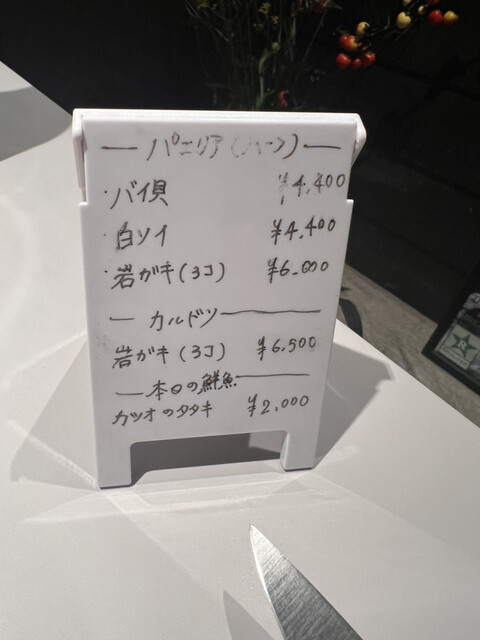 パエリア(ハーフ)
・バイ貝 ¥4,400
・白ソイ ¥4,400
・岩ガキ(3コ) ¥6.000
カルドソ
岩ガキ(3コ) ¥6,500
本日の鮮魚
カツオのタタキ ¥2,000